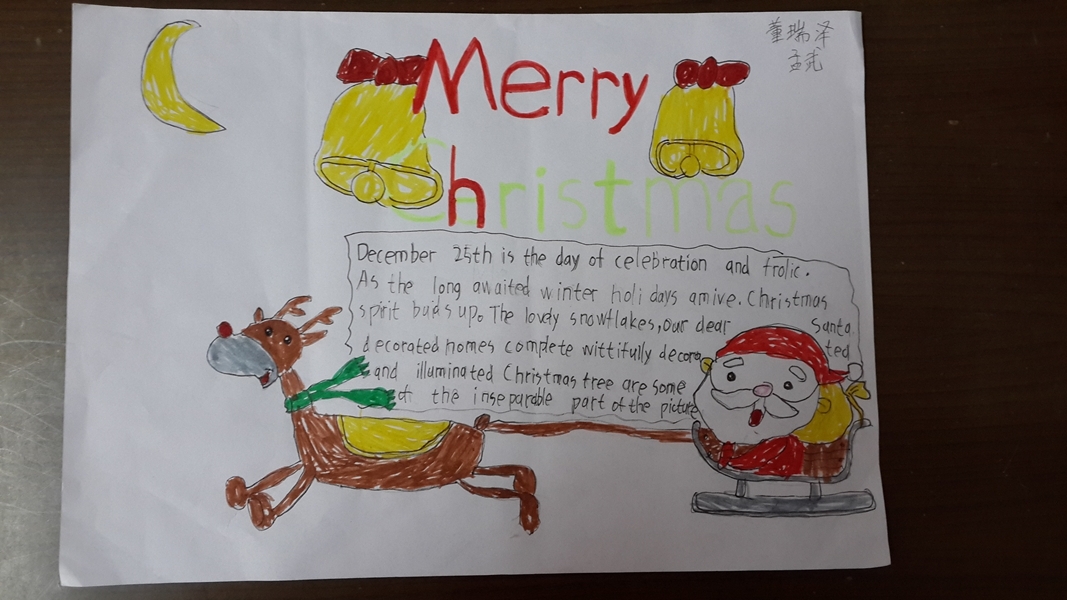 董瑞泽
Merry
Christmas
December 25th is the day of celebration and frolic.
As the long awaited winter holidays amive. Christmas
spirit buids up。The lovely snowflakes,our dear Santa.
decorated homes complete wittifully decora ted
and illuminated Christmas tree are some
of the inseparable part of the picture